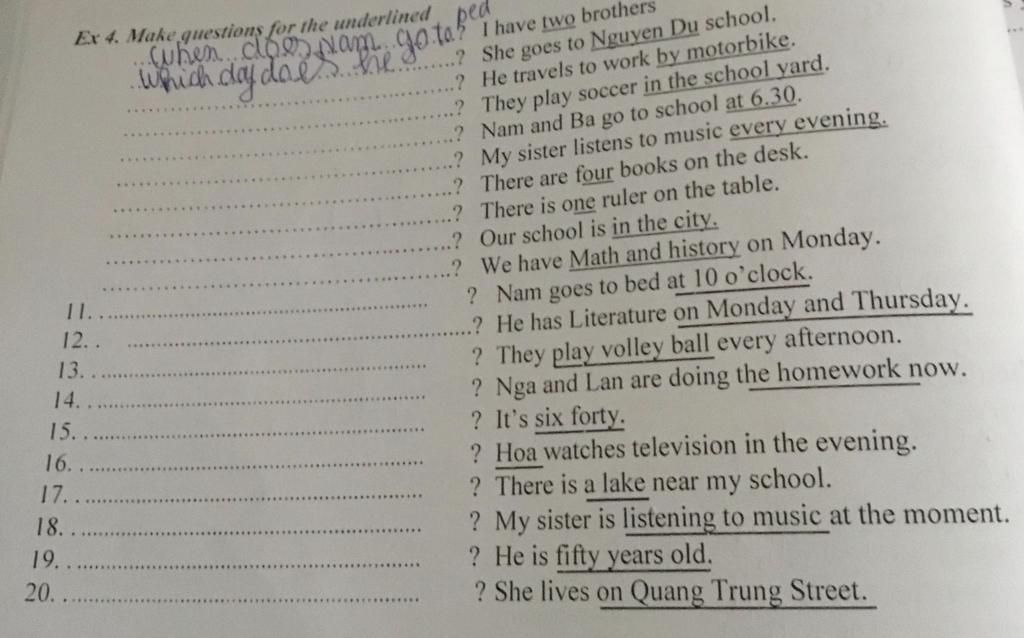 Ex 4. Make questions for the underlined
when does Nam go to bed? I have two brothers
which day does he ...? She goes to Nguyen Du school.
...? He travels to work by motorbike.
...? They play soccer in the school yard.
...? Nam and Ba go to school at 6.30.
...? My sister listens to music every evening.
...? There are four books on the desk.
...? There is one ruler on the table.
...? Our school is in the city.
...? We have Math and history on Monday.
11. ... ? Nam goes to bed at 10 o'clock.
12. . ...? He has Literature on Monday and Thursday.
13. . ... ? They play volley ball every afternoon.
14. . ... ? Nga and Lan are doing the homework now.
15. . ... ? It's six forty.
16. . ... ? Hoa watches television in the evening.
17. . ... ? There is a lake near my school.
18. . ... ? My sister is listening to music at the moment.
19. . ... ? He is fifty years old.
20. . ... ? She lives on Quang Trung Street.